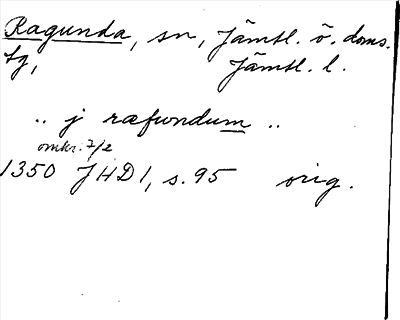 Ragunda, sn, Jämtl. ö. doms.
tg, Jämtl. l.
.. j ræfundum ..
omkr. 7/2
1350 JHD 1, s. 95 orig.